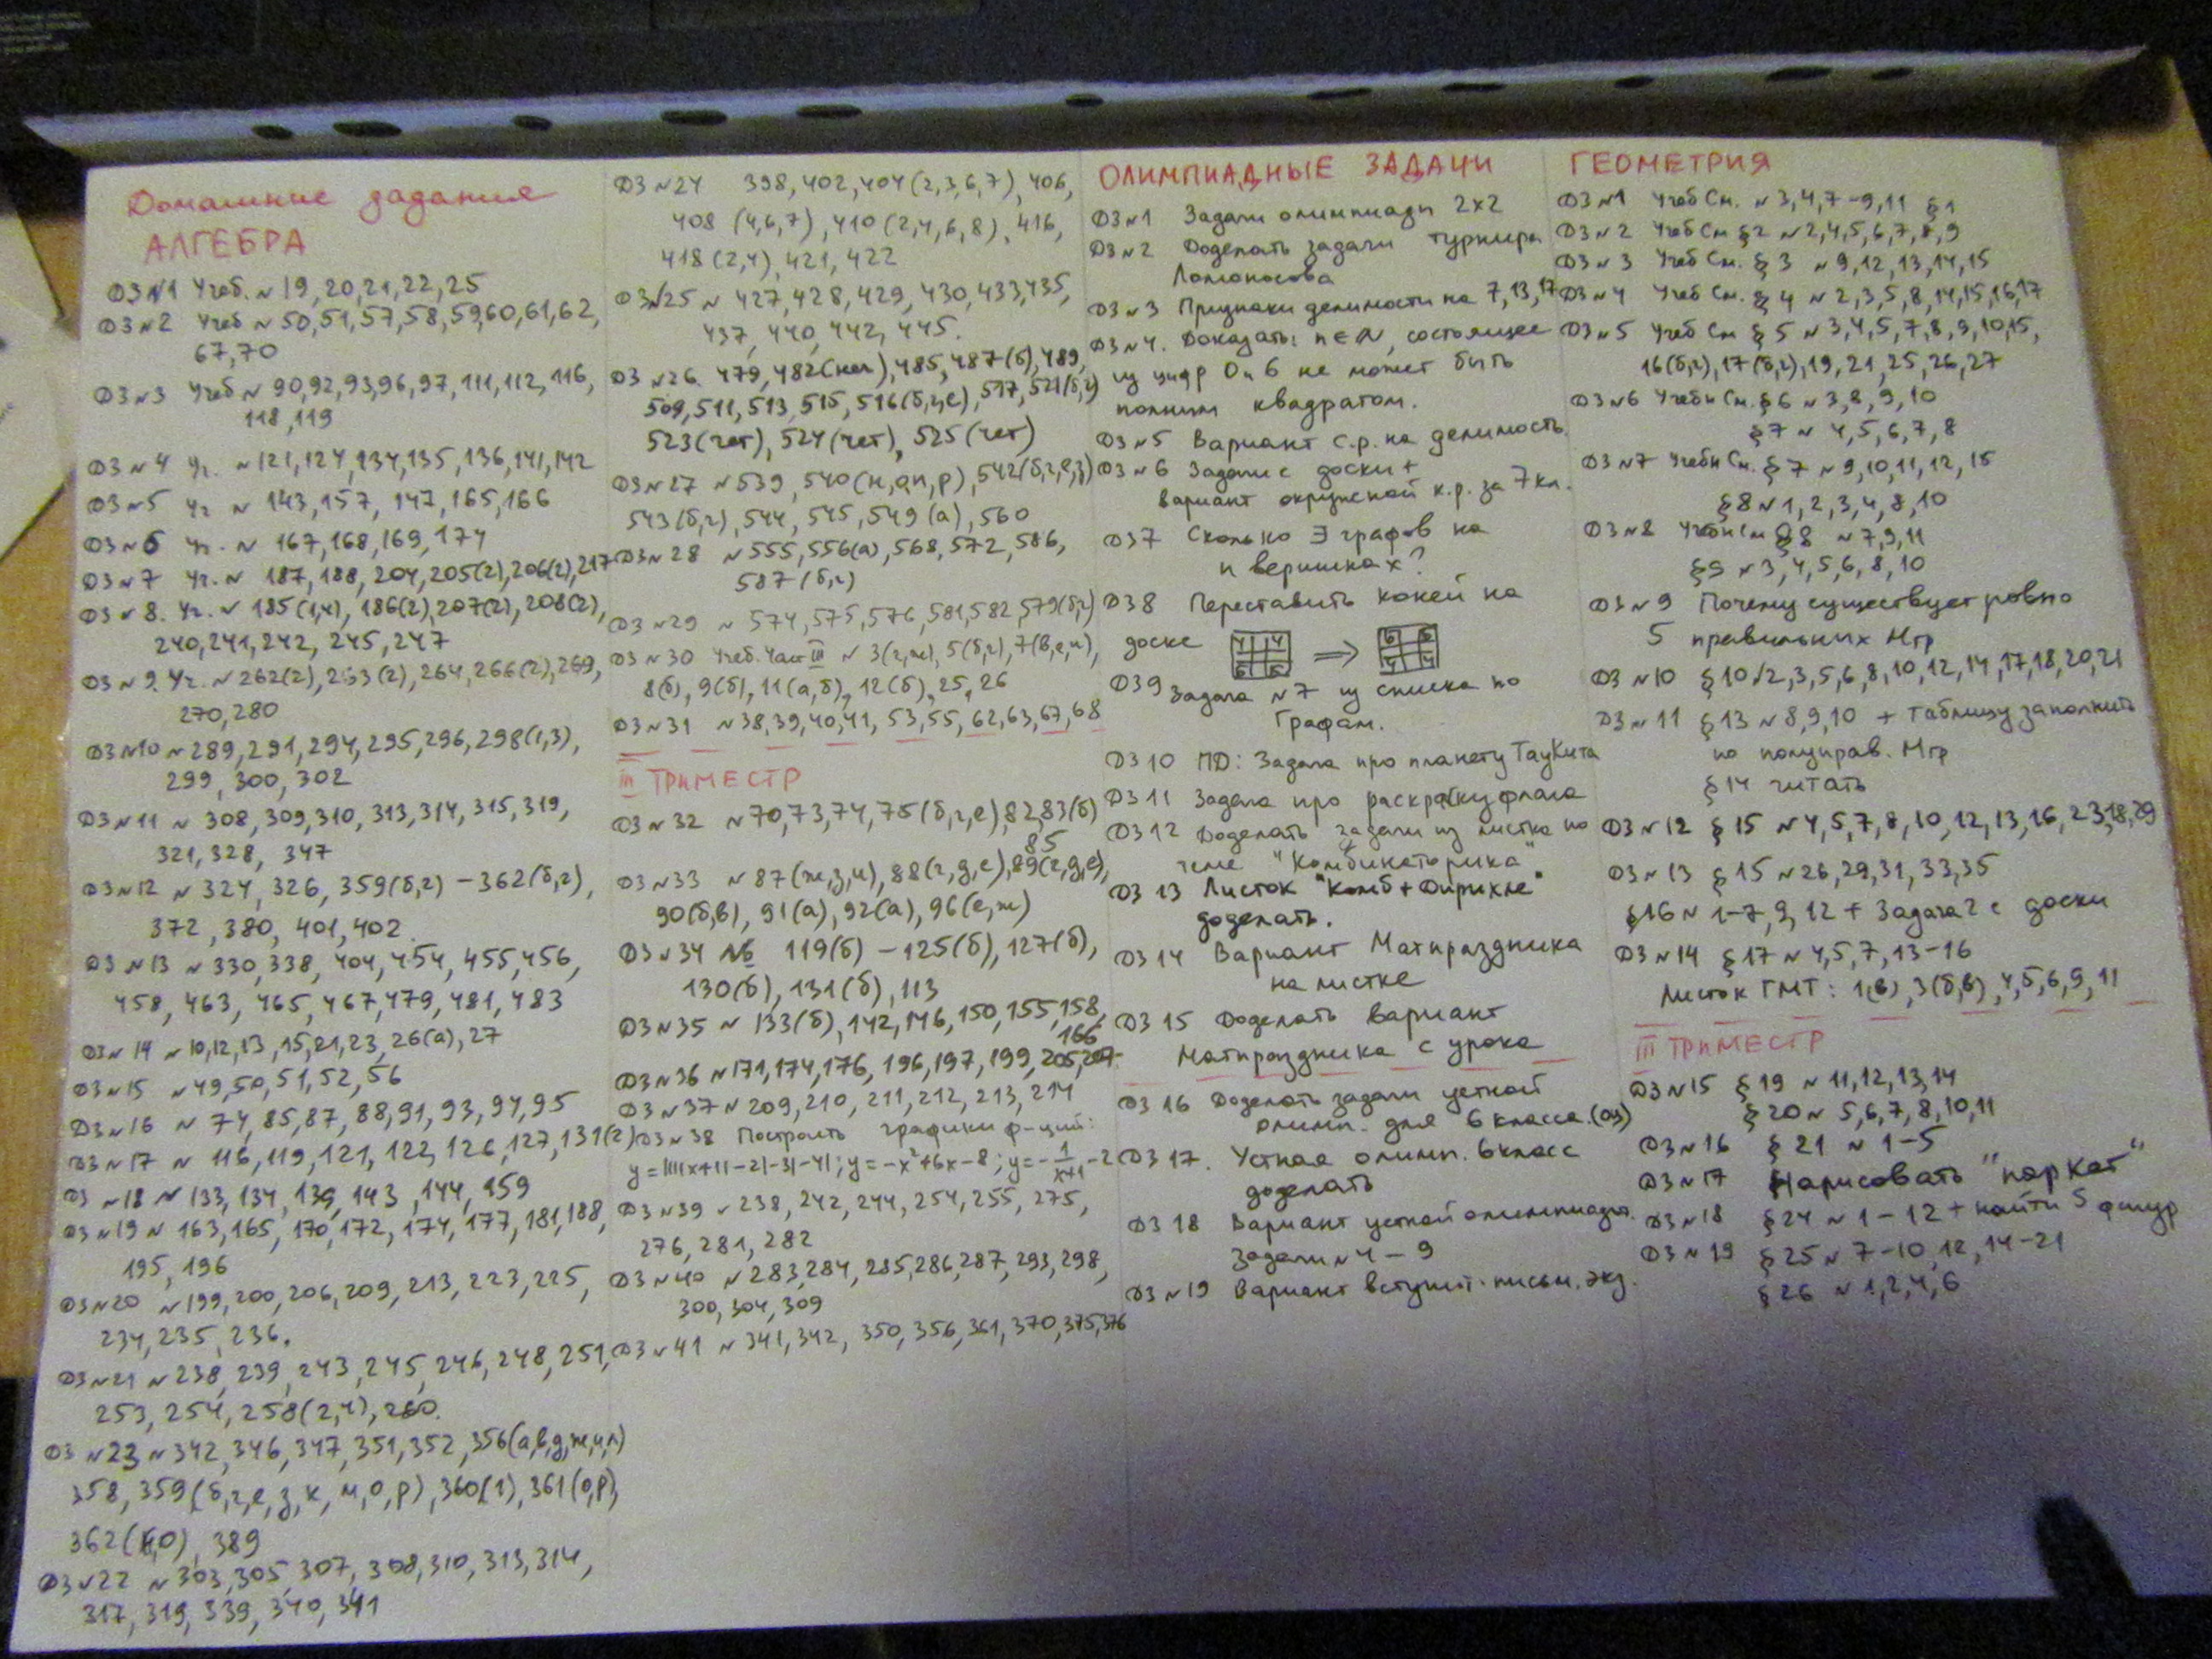 Домашние задания
АЛГЕБРА
ДЗ№1 Учеб. № 19, 20, 21, 22, 25
ДЗ№2 Учеб № 50, 51, 57, 58, 59, 60, 61, 62,
67, 70
ДЗ№3 Учеб № 90, 92, 93, 96, 97, 111, 112, 116,
118, 119
ДЗ№4 Уч. № 121, 124, 134, 135, 136, 141, 142
ДЗ№5 Уч № 143, 157, 147, 165, 166
ДЗ№6 Уч. № 167, 168, 169, 174
ДЗ№7 Уч. № 187, 188, 204, 205(2), 206(2), 217
ДЗ№8. Уч. № 185(1,4), 186(2), 207(2), 208(2),
240, 241, 242, 245, 247
ДЗ№9. Уч. № 262(2), 263(2), 264, 266(2), 269,
270, 280
ДЗ№10 № 289, 291, 294, 295, 296, 298(1,3),
299, 300, 302
ДЗ№11 № 308, 309, 310, 313, 314, 315, 319,
321, 328, 347
ДЗ№12 № 324, 326, 359(б,г) – 362(б,г),
372, 380, 401, 402.
ДЗ№13 № 330, 338, 404, 454, 455, 456,
458, 463, 465, 467, 479, 481, 483
ДЗ№14 № 10, 12, 13, 15, 21, 23, 26(а), 27
ДЗ№15 № 49, 50, 51, 52, 56
ДЗ№16 № 74, 85, 87, 88, 91, 93, 94, 95
ДЗ№17 № 116, 119, 121, 122, 126, 127, 131(2)
ДЗ №18 № 133, 134, 139, 143, 144, 159
ДЗ№19 № 163, 165, 170, 172, 174, 177, 181, 188,
195, 196
ДЗ№20 № 199, 200, 206, 209, 213, 223, 225,
234, 235, 236.
ДЗ№21 № 238, 239, 243, 245, 246, 248, 251,
253, 254, 258(2,4), 260.
ДЗ №23 № 342, 346, 347, 351, 352, 356(а,в,д,ж,и,л)
358, 359(б,г,е,з,к,м,о,р), 360(1), 361(о,р),
362( о), 389
ДЗ№22 № 303, 305, 307, 308, 310, 313, 314,
317, 319, 339, 340, 341
ДЗ№24 398, 402, 404(2,3,6,7), 406,
408 (4,6,7), 410(2,4,6,8), 416,
418(2,4), 421, 422
ДЗ№25 № 427, 428, 429, 430, 433, 435,
437, 440, 442, 445.
ДЗ №26. 479, 482(неч), 485, 487(б), 489,
509, 511, 513, 515, 516(б,г,е), 517, 521(б,г)
523(чет), 524(чет), 525(чет)
ДЗ№27 № 539, 540(н,о,п,р), 542(б,г,е,з)
543(б,г), 544, 545, 549(а), 560
ДЗ№28 № 555, 556(а), 568, 572, 586,
587(б,г)
ДЗ№29 № 574, 575, 576, 581, 582, 579(б,г)
ДЗ№30 Учеб. Част III № 3(г,ж), 5(б,г), 7(в,е,и),
8(б), 9(б), 11(а,б), 12(б), 25, 26
ДЗ№31 № 38, 39, 40, 41, 53, 55, 62, 63, 67, 68
III ТРИМЕСТР
ДЗ№32 № 70, 73, 74, 75(б,г,е), 82, 83(б)
85
ДЗ№33 № 87(ж,з,и), 88(г,д,е), 89(г,д,е),
90(б,в), 91(а), 92(а), 96(е,ж)
ДЗ№34 № 119(б) – 125(б), 127(б),
130(б), 131(б), 113
ДЗ№35 № 133(б), 142, 146, 150, 155, 158,
166
ДЗ№36 № 171, 174, 176, 196, 197, 199, 205, 207
ДЗ№37 № 209, 210, 211, 212, 213, 214
ДЗ№38 Построить графики ф-ций:
y=||||x+1|-2|-3|-4|; y=-x²+6x-8; y=-1/(x+1)-2
ДЗ№39 № 238, 242, 244, 254, 255, 275,
276, 281, 282
ДЗ№40 № 283, 284, 285, 286, 287, 293, 298,
300, 304, 309
ДЗ№41 № 341, 342, 350, 356, 361, 370, 375, 376
ОЛИМПИАДНЫЕ ЗАДАЧИ
ДЗ№1 Задачи олимпиады 2x2
ДЗ№2 Доделать задачи турнира
Ломоносова
ДЗ№3 Признаки делимости на 7, 13, 17
ДЗ№4. Доказать: n∈N, состоящее
из цифр 0 и 6 не может быть
полным квадратом.
ДЗ№5 Вариант с.р. на делимость.
ДЗ№6 Задачи с доски +
вариант окружной к.р. за 7кл.
ДЗ7 Сколько ∃ графов на
n вершинах?
ДЗ8 Переставить коней на
доске ⇒
ДЗ9 Задача №7 из списка по
Графам.
ДЗ10 ПД: Задача про планету ТауКита
ДЗ11 Задача про раскраску флага
ДЗ12 Доделать задачи из листка по
теме "Комбинаторика"
ДЗ13 Листок "Комб+Дирихле"
доделать.
ДЗ14 Вариант Матпраздника
на листке
ДЗ15 Доделать вариант
Матпраздника с урока
ДЗ16 Доделать задачи устной
олимп. для 6 класса.
ДЗ17. Устная олимп. 6класс
доделать
ДЗ18 Вариант устной олимпиады.
Задачи №4 – 9
ДЗ№19 Вариант вступит. письм. экз.
ГЕОМЕТРИЯ
ДЗ№1 Учеб См. № 3, 4, 7–9, 11 §1
ДЗ№2 Учеб См §2 № 2, 4, 5, 6, 7, 8, 9
ДЗ№3 Учеб См. §3 № 9, 12, 13, 14, 15
ДЗ№4 Учеб См. §4 № 2, 3, 5, 8, 14, 15, 16, 17
ДЗ№5 Учеб См §5 № 3, 4, 5, 7, 8, 9, 10, 15,
16(б,г), 17(б,г), 19, 21, 25, 26, 27
ДЗ№6 Учебн См. §6 № 3, 8, 9, 10
§7 № 4, 5, 6, 7, 8
ДЗ№7 Учебн См. §7 № 9, 10, 11, 12, 15
§8 № 1, 2, 3, 4, 8, 10
ДЗ№8 Учебн См §8 № 7, 9, 11
§9 № 3, 4, 5, 6, 8, 10
ДЗ№9 Почему существует ровно
5 правильных Мгр
ДЗ№10 §10 № 2, 3, 5, 6, 8, 10, 12, 14, 17, 18, 20, 21
ДЗ№11 §13 № 8, 9, 10 + таблицу заполнить
по полуправ. Мгр
§14 читать
ДЗ№12 §15 № 4, 5, 7, 8, 10, 12, 13, 16, 23, 18, 29
ДЗ№13 §15 № 26, 29, 31, 33, 35
§16 № 1–7, 9, 12 + Задача 2 с доски
ДЗ№14 §17 № 4, 5, 7, 13–16
Листок ГМТ: 1(в), 3(б,в), 4, 5, 6, 9, 11
III ТРИМЕСТР
ДЗ№15 §19 № 11, 12, 13, 14
§20 № 5, 6, 7, 8, 10, 11
ДЗ№16 §21 № 1–5
ДЗ№17 Нарисовать "паркет"
ДЗ№18 §24 № 1–12 + найти S фигур
ДЗ№19 §25 № 7–10, 12, 14–21
§26 № 1, 2, 4, 6